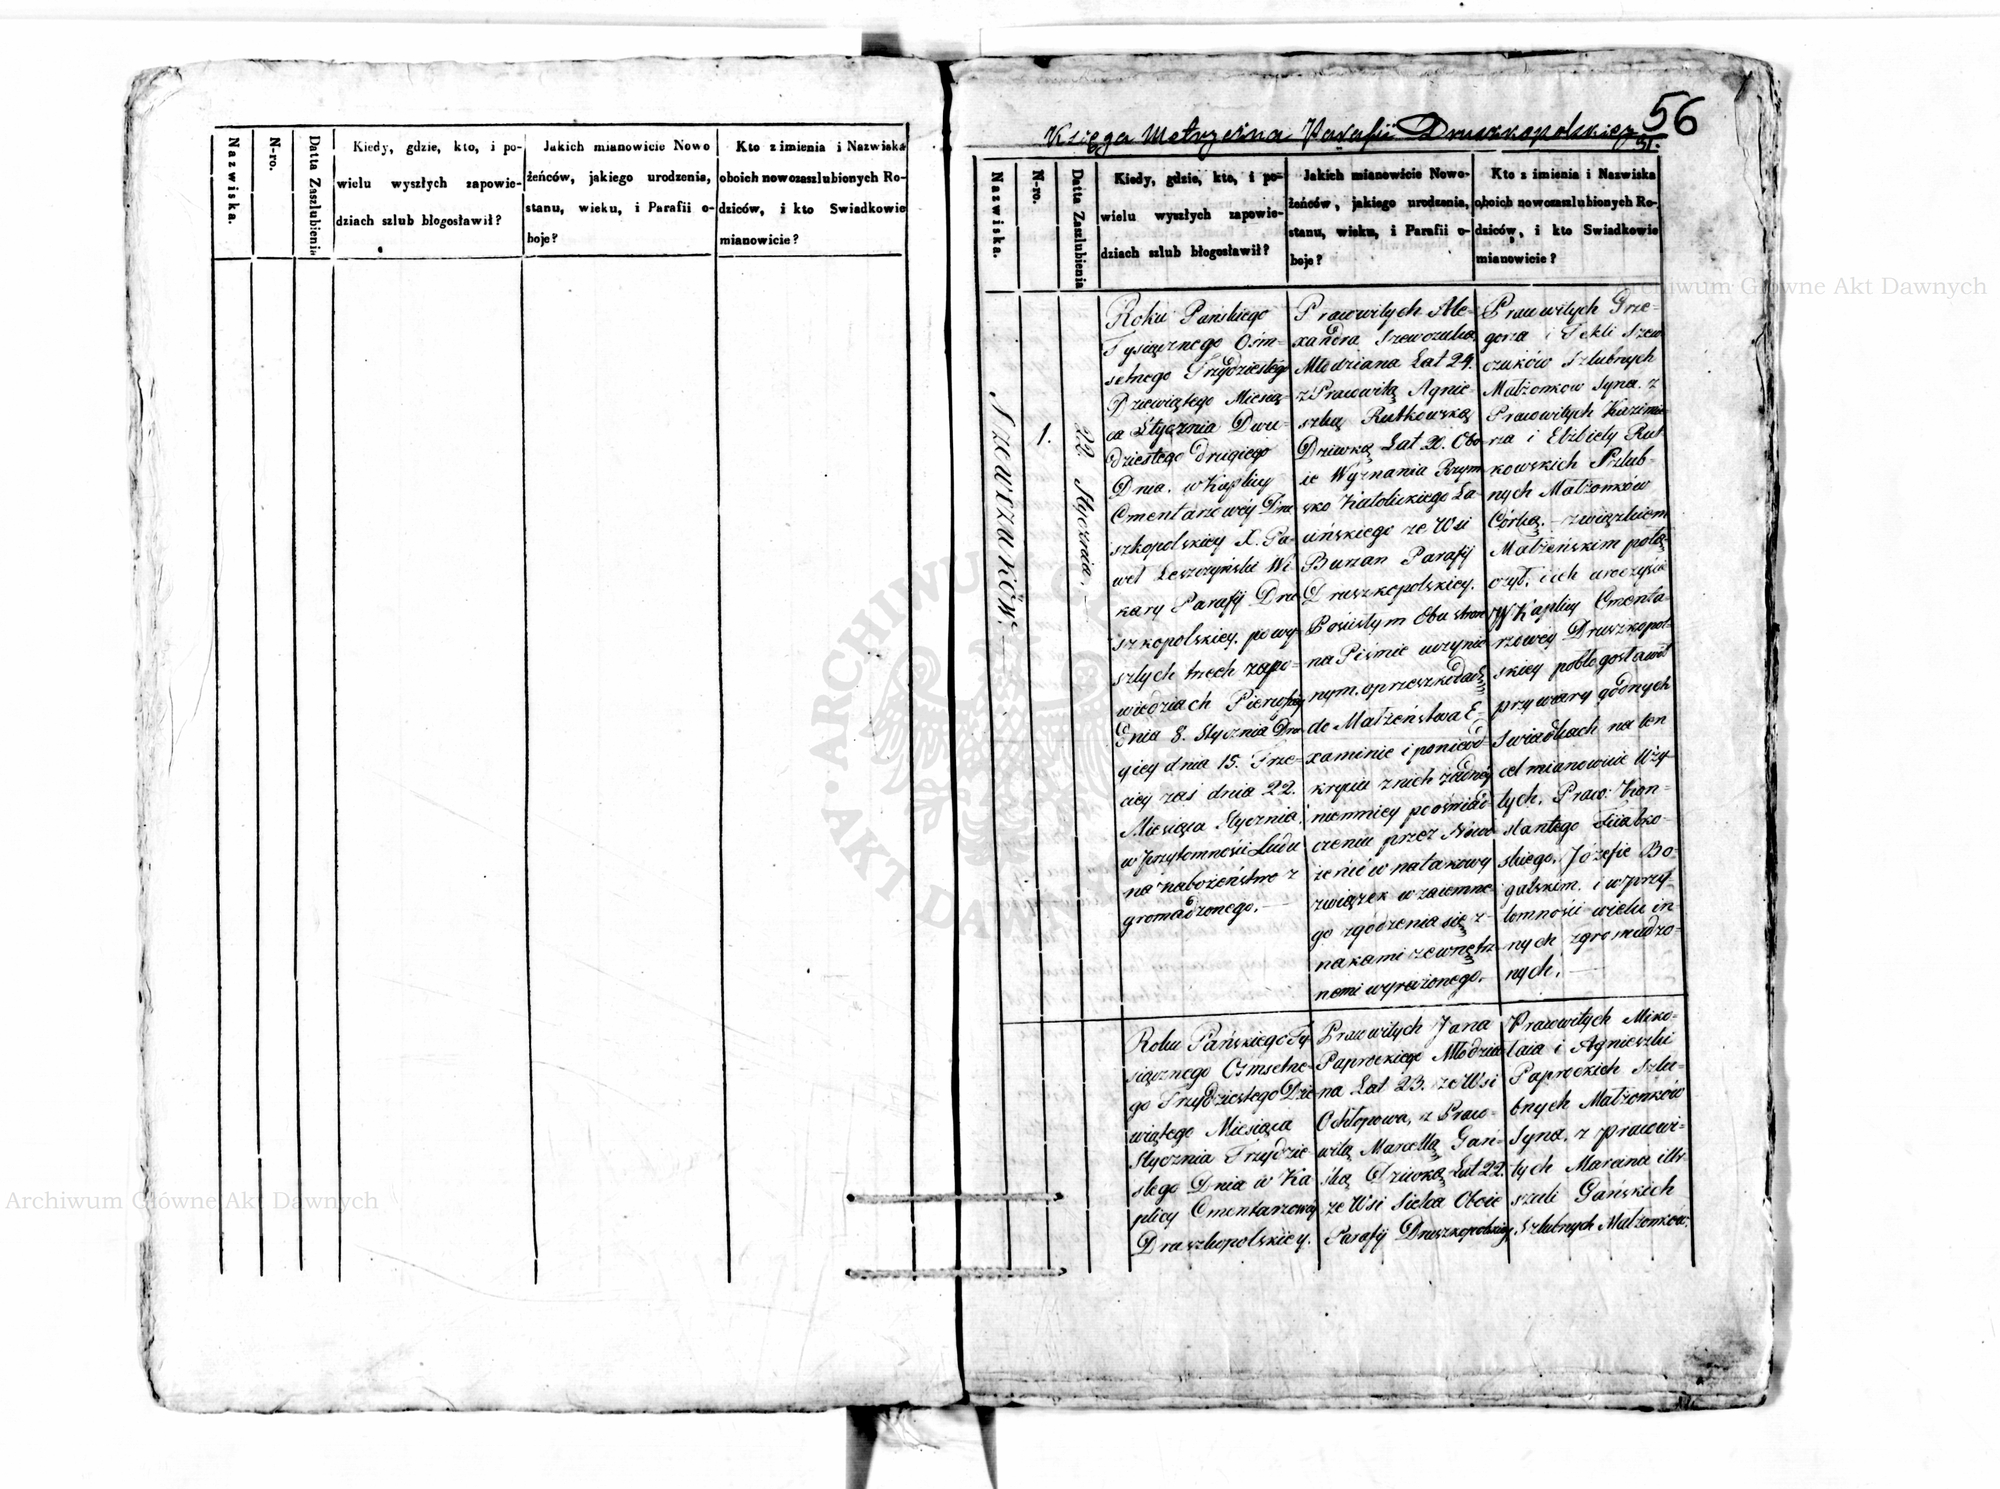 Nazwiska.
N-ro.
Datta Zaszlubienia
Kiedy, gdzie, kto, i po-
wielu wyszłych zapowie-
dziach szlub błogosławił?
Jakich mianowicie Nowo
żeńców, jakiego urodzenia,
stanu, wieku, i Parafii o-
boje?
Kto z imienia i Nazwiska
oboich nowozaszlubionych Ro-
dziców, i kto Swiadkowie
mianowicie?
56
Księga Metryczna Parafii Druszkopolskiey
Nazwiska.
N-ro.
Datta Zaszlubienia
Kiedy, gdzie, kto, i po-
wielu wyszłych zapowie-
dziach szlub błogosławił?
Jakich mianowicie Nowo-
żeńców, jakiego urodzenia,
stanu, wieku, i Parafii o-
boje?
Kto z imienia i Nazwiska
oboich nowozaszlubionych Ro-
dziców, i kto Swiadkowie
mianowicie?
Szewczuków.
1.
22 Stycznia.
Roku Pańskiego
Tysiącznego Ośm-
setnego Trzydziestego
Dziewiątego Miesią-
ca Stycznia Dwu-
dziestego drugiego
Dnia. w Kaplicy
Cmentarzowey Dru
szkopolskiey X. Pa-
weł Leszczyński Wi
kary Parafij Dru
szkopolskiey. po wy-
szłych trzech zapo-
wiedziach Pierwszey
dnia 8. Stycznia Dru
giey dnia 15. Trze-
ciey zaś dnia 22.
Miesiąca Stycznia
w przytomności Ludu
na nabożeństwo z
gromadzonego.
Pracowitych Ale-
xandra Szewczuka
Młodziana Lat 24.
z Pracowitą Agnie-
szką Rutkowską
Dziewką Lat 20. Obo-
ie Wyznania Rzym
sko Katolickiego Ła-
cińskiego ze Wsi
Burzan Parafij
Druszkopolskiey.
Po ścisłym Obu stron
na Piśmie uczynio
nym. o przeszkodach
do Małżeństwa E-
xaminie i po nieod-
kryciu z nich żadney
niemniey po oświad
czeniu przez Nowo
żeńców na takowy
związek wzaiemne
go zgodzenia się z-
nakami zewnętrz
nemi wyrażonego.
Pracowitych Grze-
gorza i Tekli Szew
czuków Szlubnych
Małżonków Syna. z
Pracowitych Kazimie
rza i Elżbiety Rut
kowskich Szlub-
nych Małżonków
Córką. związkiem
Małżeńskim połą-
czył, i ich uroczyście
W Kaplicy Cmenta-
rzowey Druszkopol-
skiey pobłogosławił
przy wiary godnych
Swiadkach na ten
cel mianowicie Wzy-
tych. Praco: Kon-
stantego Fiiałko-
skiego, Józefie Bo-
galskim. i w przy-
tomności wielu in-
nych zgromadzo-
nych.
Roku Pańskiego Ty
siącznego Ośmsetne-
go Trzydziestego Dzie
wiątego Miesiąca
Stycznia Trzydzie-
stego Dnia w Ka
plicy Cmentarzowey
Druszkopolskiey.
Pracowitych Jana
Paprockiego Młodzia
na Lat 23. ze Wsi
Ochłopowa, z Praco-
witą Marcellą Gań-
ską Dziewką Lat 22.
ze Wsi Sielca Oboie
Parafij Druszkopolskiey
Pracowitych Miko-
łaia i Agnieszki
Paprockich Szlu-
bnych Małżonków
Syna. z Pracowi-
tych Marcina i Ur-
szuli Gańskich
Szlubnych Małżonków.
Archiwum Główne Akt Dawnych
Archiwum Główne Akt Dawnych